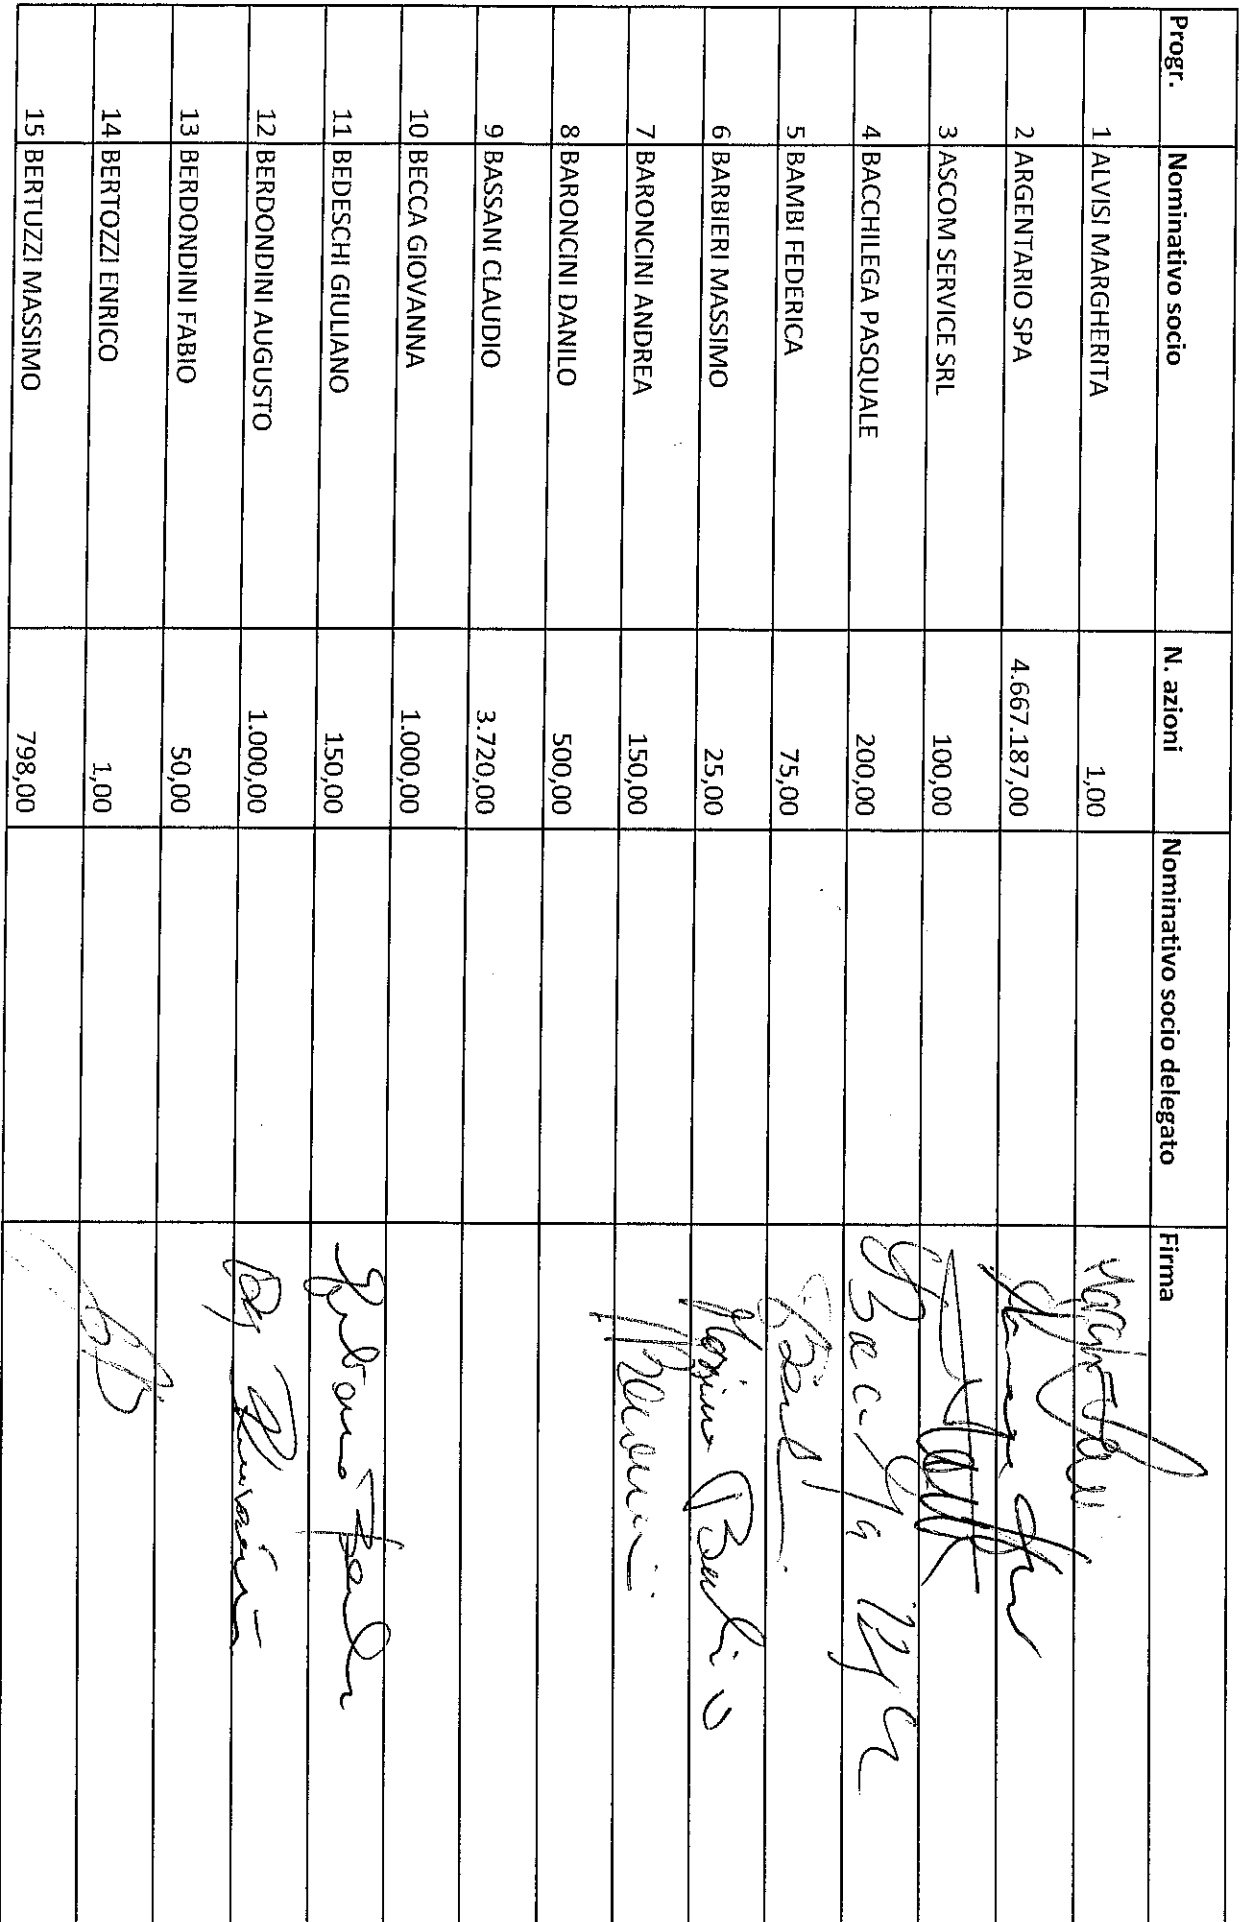 Progr. Nominativo socio N. azioni Nominativo socio delegato Firma
1 ALVISI MARGHERITA 1,00
2 ARGENTARIO SPA 4.667.187,00
3 ASCOM SERVICE SRL 100,00
4 BACCHILEGA PASQUALE 200,00
5 BAMBI FEDERICA 75,00
6 BARBIERI MASSIMO 25,00 Massimo
7 BARONCINI ANDREA 150,00
8 BARONCINI DANILO 500,00
9 BASSANI CLAUDIO 3.720,00
10 BECCA GIOVANNA 1.000,00
11 BEDESCHI GIULIANO 150,00
12 BERDONDINI AUGUSTO 1.000,00
13 BERDONDINI FABIO 50,00
14 BERTOZZI ENRICO 1,00
15 BERTUZZI MASSIMO 798,00